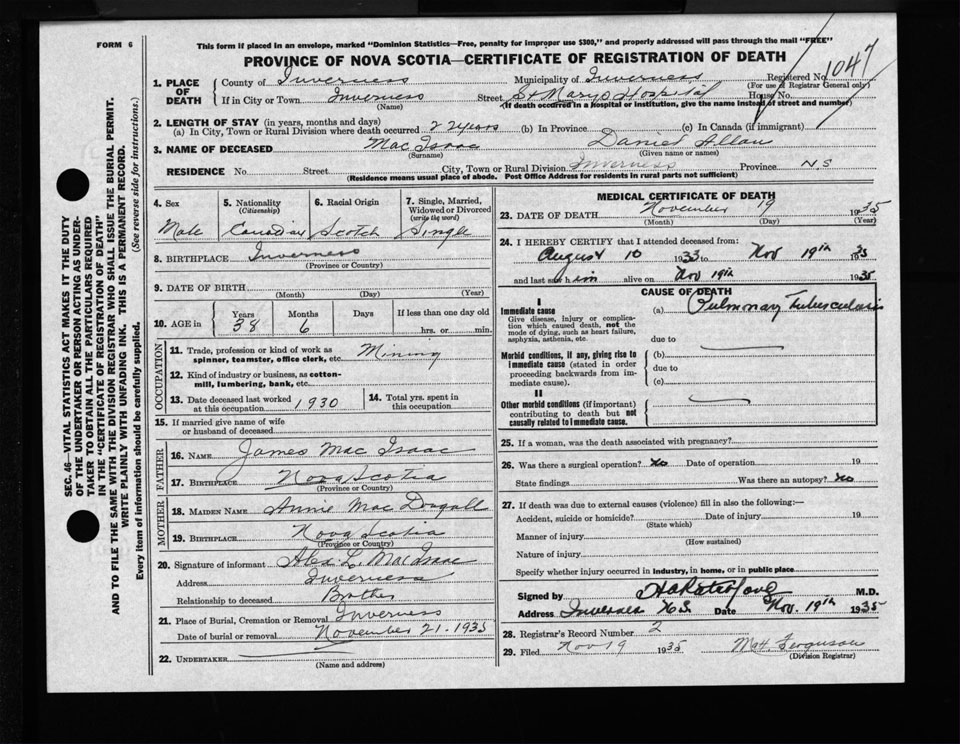 FORM 6
This form if placed in an envelope, marked "Dominion Statistics—Free, penalty for improper use $300," and properly addressed will pass through the mail "FREE"
PROVINCE OF NOVA SCOTIA—CERTIFICATE OF REGISTRATION OF DEATH
SEC. 46—VITAL STATISTICS ACT MAKES IT THE DUTY
OF THE UNDERTAKER OR PERSON ACTING AS UNDER-
TAKER TO OBTAIN ALL THE PARTICULARS REQUIRED
IN THE "CERTIFICATE OF REGISTRATION OF DEATH"
AND TO FILE THE SAME WITH THE DIVISION REGISTRAR WHO SHALL ISSUE THE BURIAL PERMIT.
WRITE PLAINLY WITH UNFADING INK. THIS IS A PERMANENT RECORD.
Every item of information should be carefully supplied. (See reverse side for instructions.)
1. PLACE OF DEATH
County of Inverness Municipality of Inverness Registered No. 1047
(For use of Registrar General only)
If in City or Town Inverness Street St Marys Hospital House No.
(Name) (If death occurred in a hospital or institution, give the name instead of street and number)
2. LENGTH OF STAY (in years, months and days)
(a) In City, Town or Rural Division where death occurred 22 years (b) In Province (c) In Canada (if immigrant)
3. NAME OF DECEASED Mac Isaac Daniel Allan
(Surname) (Given name or names)
RESIDENCE No. Street City, Town or Rural Division Inverness Province N S
(Residence means usual place of abode. Post Office Address for residents in rural parts not sufficient)
4. Sex Male
5. Nationality (Citizenship) Canadian
6. Racial Origin Scotch
7. Single, Married, Widowed or Divorced (write the word) Single
8. BIRTHPLACE Inverness
(Province or Country)
9. DATE OF BIRTH
(Month) (Day) (Year)
10. AGE in Years 38 Months 6 Days If less than one day old
hrs. or min.
OCCUPATION
11. Trade, profession or kind of work as spinner, teamster, office clerk, etc. Mining
12. Kind of industry or business, as cotton-mill, lumbering, bank, etc.
13. Date deceased last worked at this occupation 1930
14. Total yrs. spent in this occupation
15. If married give name of wife or husband of deceased
FATHER
16. NAME James Mac Isaac
17. BIRTHPLACE Nova Scotia
(Province or Country)
MOTHER
18. MAIDEN NAME Annie Mac Dugall
19. BIRTHPLACE Nova Scotia
(Province or Country)
20. Signature of informant Alex L. MacIsaac
Address Inverness
Relationship to deceased Brother
21. Place of Burial, Cremation or Removal Inverness
Date of burial or removal November 21. 1935
22. UNDERTAKER
(Name and address)
MEDICAL CERTIFICATE OF DEATH
23. DATE OF DEATH November 19 1935
(Month) (Day) (Year)
24. I HEREBY CERTIFY that I attended deceased from:
August 10 1933 to Nov 19th 1935
and last saw him alive on Nov 19th 1935
CAUSE OF DEATH
I
Immediate cause
Give disease, injury or complication which caused death, not the mode of dying, such as heart failure, asphyxia, asthenia, etc.
(a) Pulmonary Tuberculosis
due to
Morbid conditions, if any, giving rise to immediate cause (stated in order proceeding backwards from immediate cause).
(b)
due to
(c)
II
Other morbid conditions (if important) contributing to death but not causally related to Immediate cause.
25. If a woman, was the death associated with pregnancy?
26. Was there a surgical operation? No Date of operation 19
State findings Was there an autopsy? No
27. If death was due to external causes (violence) fill in also the following:—
Accident, suicide or homicide? Date of injury 19
(State which)
Manner of injury
(How sustained)
Nature of injury
Specify whether injury occurred in industry, in home, or in public place
Signed by M.D.
Address Inverness N.S. Date Nov. 19th 1935
28. Registrar's Record Number 2
29. Filed Nov 19 1935 Ferguson
(Division Registrar)